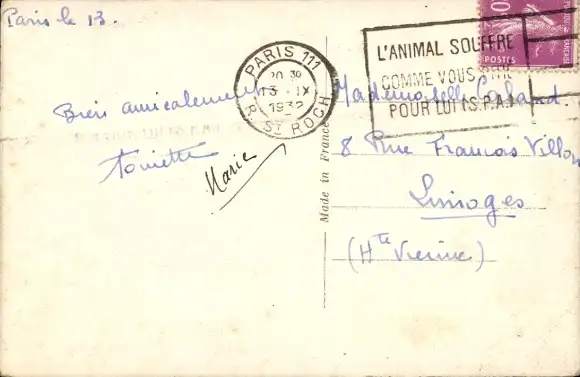 Paris le 13.
Bien amicalement
toinette
Marie
PARIS 111
20 30
13 · IX
1932
R. St ROCH
L'ANIMAL SOUFFRE
COMME VOUS
POUR LUI (S.P.A.)
POSTES
Made in France
Mademoiselle
8 Rue François Villon
Limoges
(Hte Vienne)